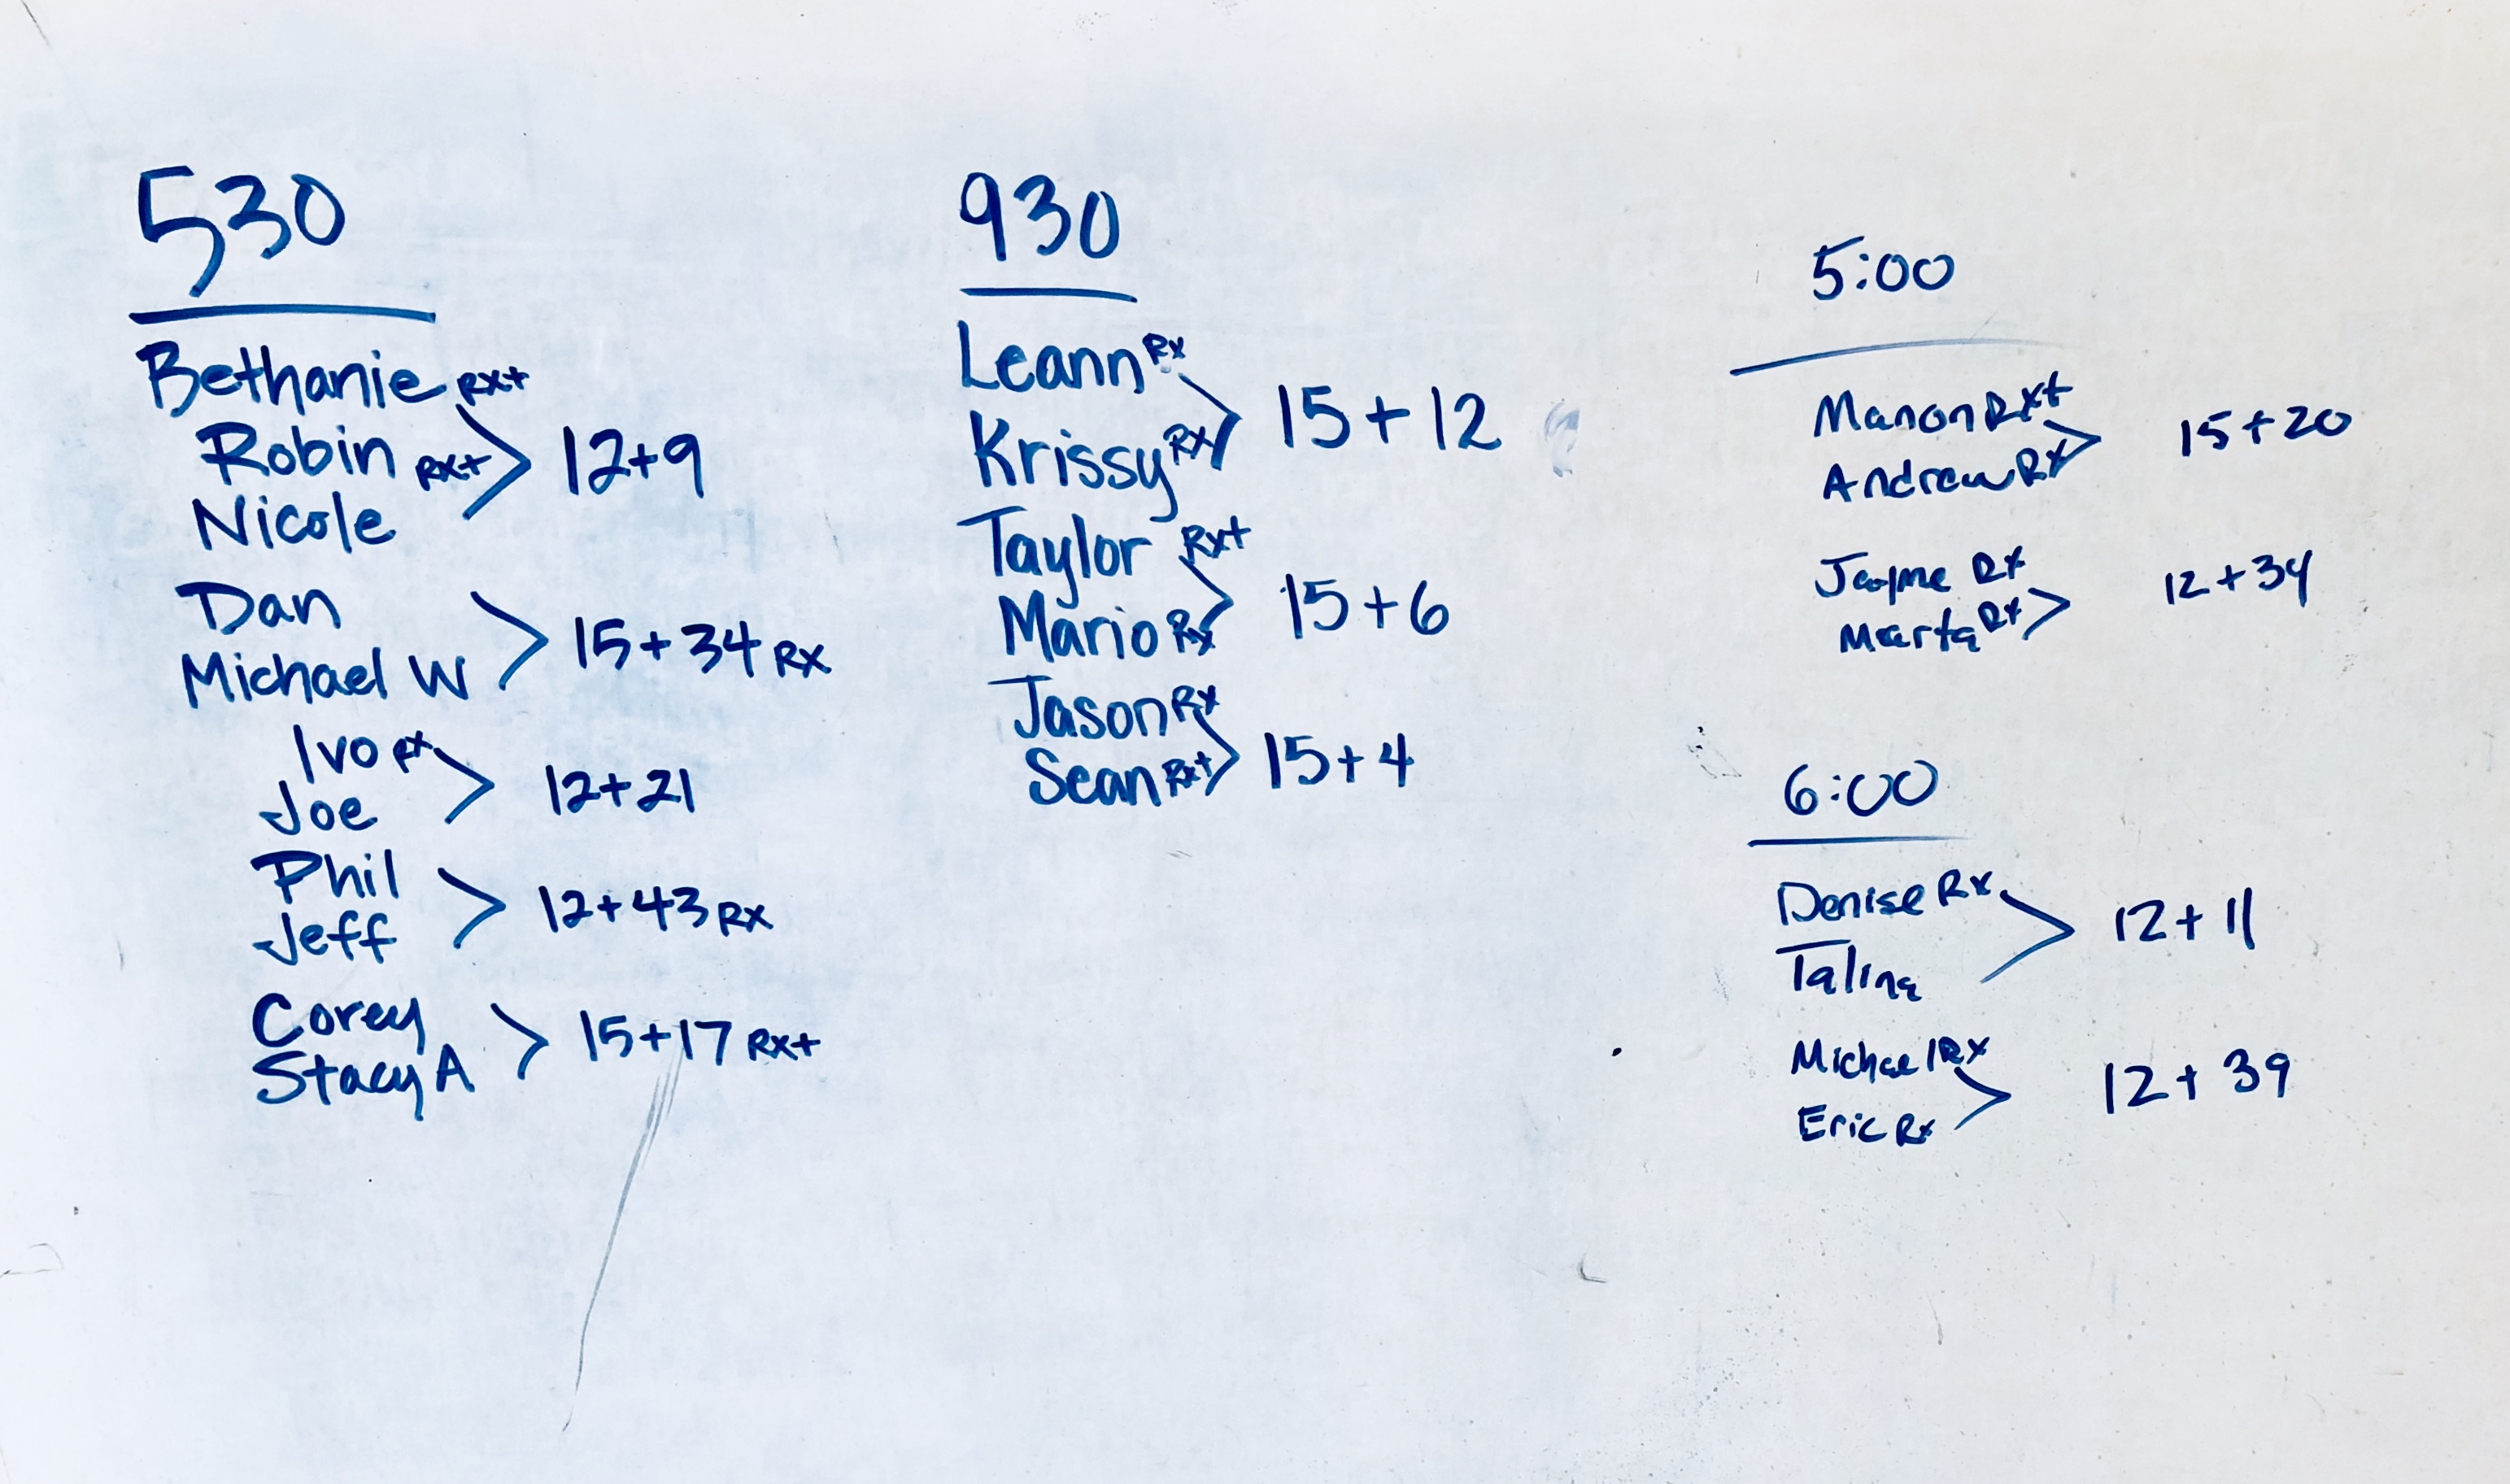 530
Bethanie Rx+
Robin Rx+
Nicole
12+9
Dan
Michael W
15+34 Rx
Ivo Rx
Joe
12+21
Phil
Jeff
12+43 Rx
Corey
Stacy A
15+17 Rx+
930
Leann Rx
Krissy Rx
15+12
Taylor Rx+
Mario Rx
15+6
Jason Rx
Sean Rx+
15+4
5:00
Manon Rx+
Andrew Rx
15+20
Jayme Rx
Marta Rx
12+34
6:00
Denise Rx
Talina
12+11
Michael Rx
Eric Rx
12+39